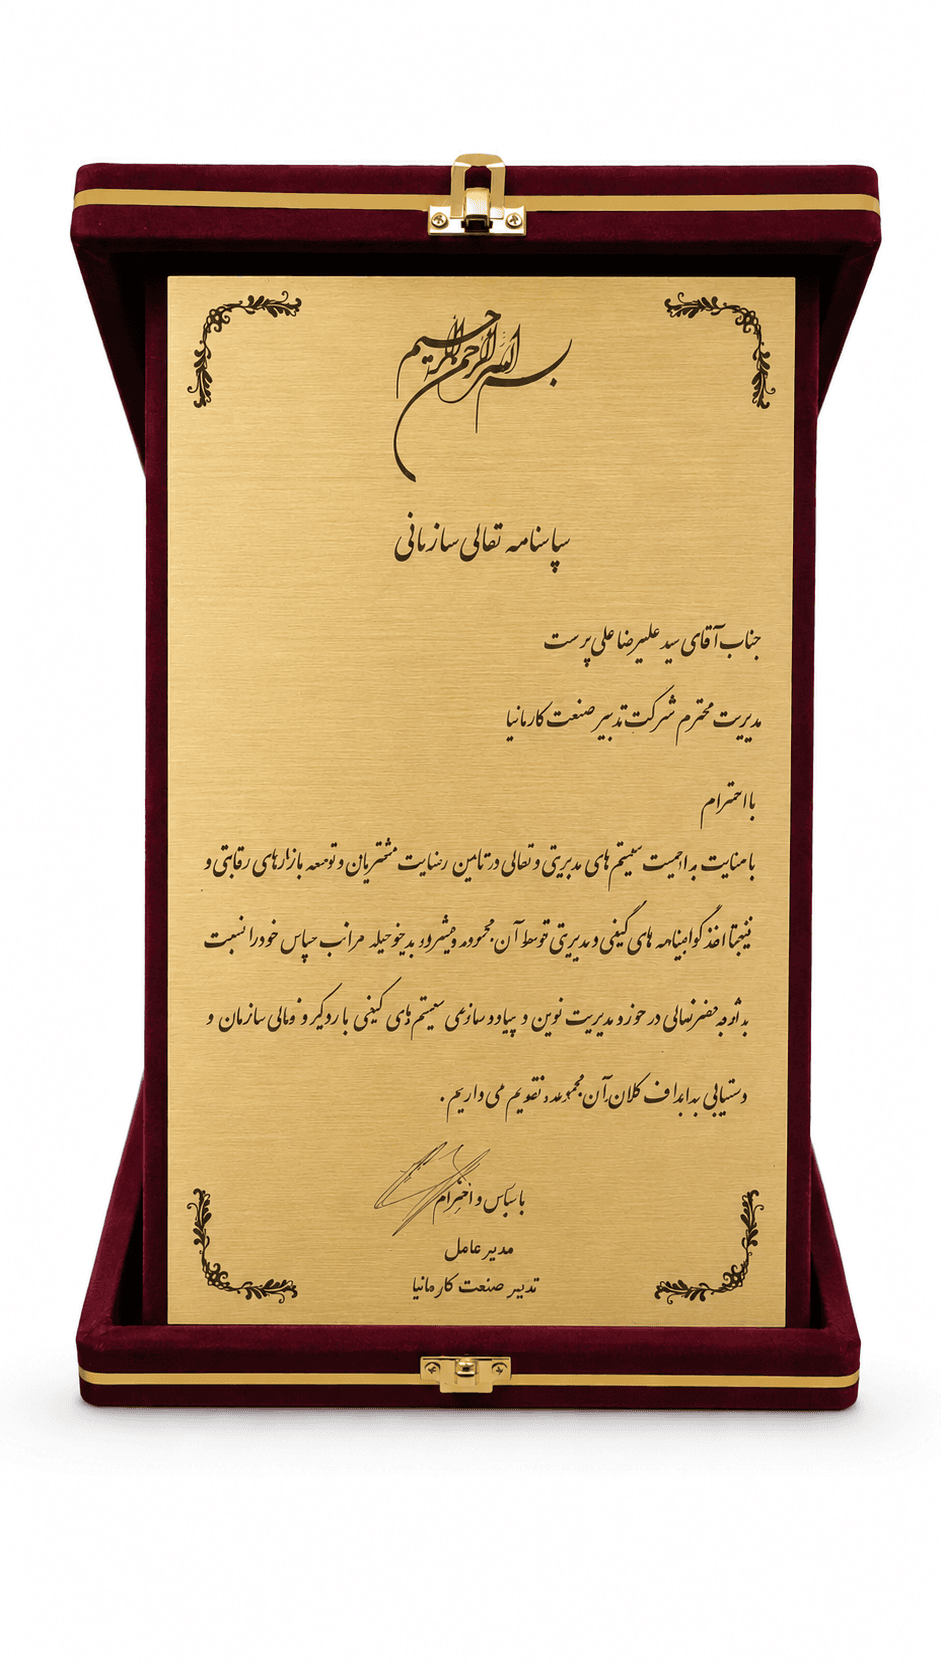 بسم الله الرحمن الرحیم
سپاسنامه تعالی سازمانی
جناب آقای سید علیرضا علی پرست
مدیریت محترم شرکت تدبیر صنعت کارمانیا
با احترام
با عنایت به اهمیت سیستم های مدیریتی و تعالی در تامین رضایت مشتریان و توسعه بازارهای رقابتی و
نتیجتا اخذ گواهینامه های کیفی و مدیریتی توسط آن مجموعه مراتب سپاس خود را نسبت
به در حوزه مدیریت نوین و پیاده سازی سیستم های کیفی سازمان و
دستیابی به اهداف کلان آن مجموعه تقدیم می داریم .
با سپاس و احترام
مدیر عامل
تدبیر صنعت کارمانیا